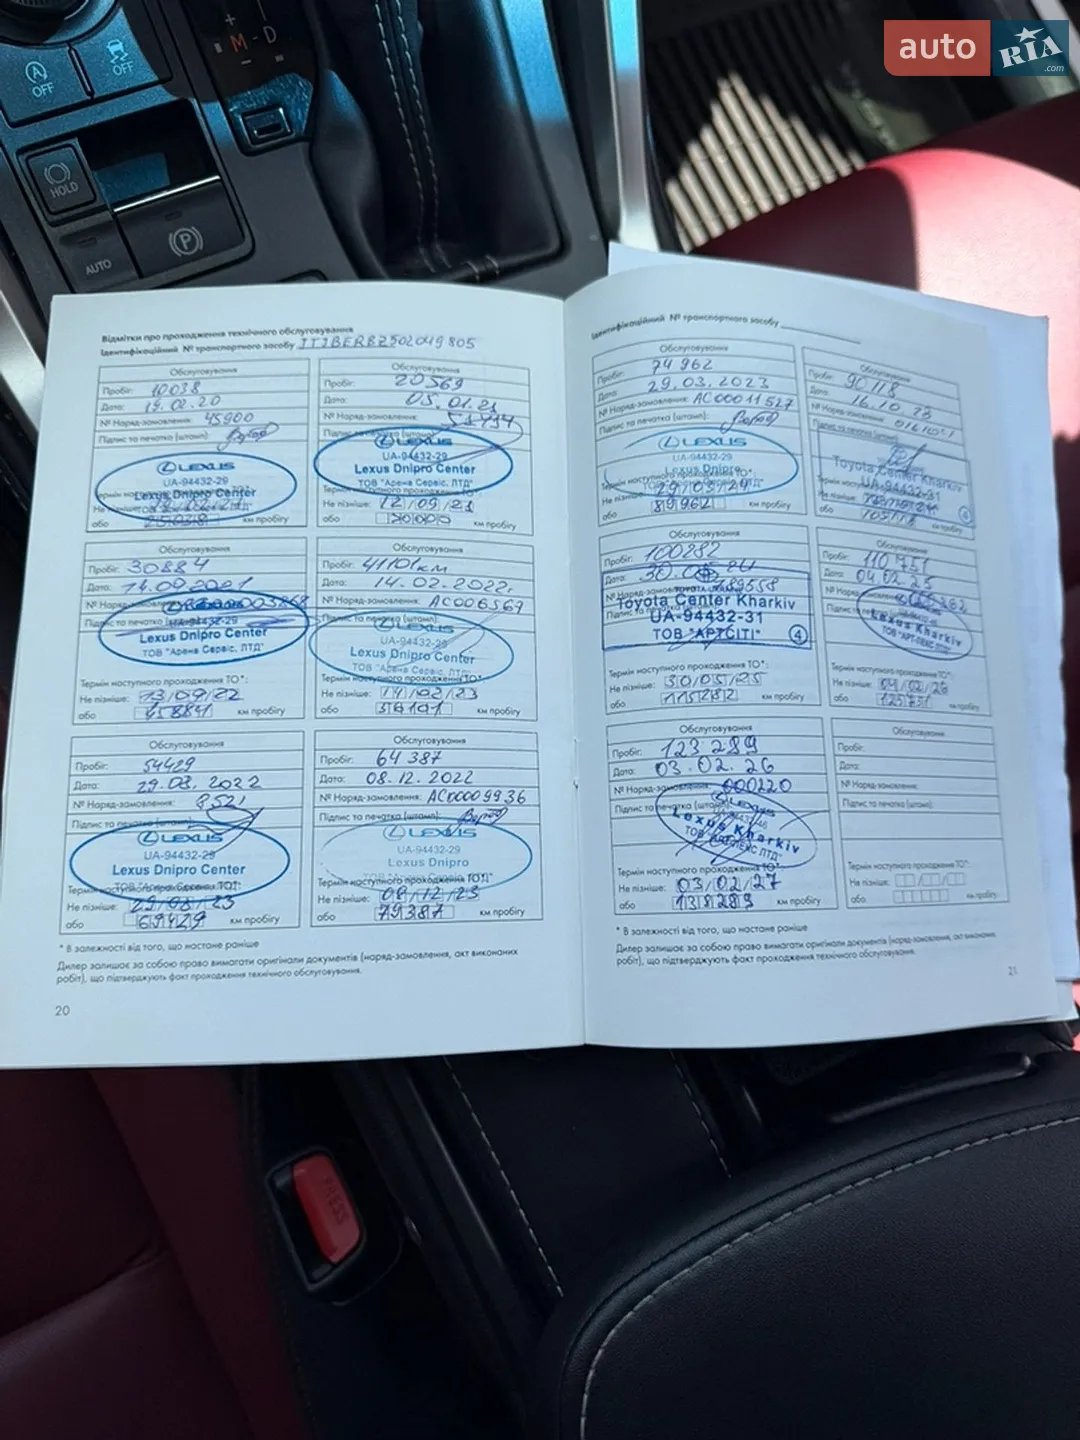 auto RIA.com
OFF
OFF
M
D
HOLD
AUTO
P
Відмітки про проходження технічного обслуговування
Ідентифікаційний № транспортного засобу JTJBERBZ502049805
Обслуговування
Пробіг: 10038
Дата: 19.02.20
№ Наряд-замовлення: 45900
Підпис та печатка (штамп):
LEXUS
UA-94432-29
Lexus Dnipro Center
Не пізніше:
або км пробігу
Обслуговування
Пробіг: 20569
Дата: 05.01.21
№ Наряд-замовлення:
Підпис та печатка (штамп):
LEXUS
UA-94432-29
Lexus Dnipro Center
ТОВ "Арена Сервіс, ЛТД"
Термін наступного проходження ТО*:
Не пізніше:
або км пробігу
Обслуговування
Пробіг: 30884
Дата: 14.09.2021
№ Наряд-замовлення:
Підпис та печатка
UA-94432-29
Lexus Dnipro Center
ТОВ "Арена Сервіс, ЛТД"
Термін наступного проходження ТО*:
Не пізніше: 13/09/22
або 45884 км пробігу
Обслуговування
Пробіг: 41101км
Дата: 14.02.2022г.
№ Наряд-замовлення: АС006569
Підпис та печатка (штамп):
LEXUS
UA-94432-29
Lexus Dnipro Center
ТОВ "Арена Сервіс, ЛТД"
Термін наступного проходження ТО*:
Не пізніше: 14/02/23
або км пробігу
Обслуговування
Пробіг: 54429
Дата: 29.08.2022
№ Наряд-замовлення: 8521
Підпис та печатка (штамп):
LEXUS
UA-94432-29
Lexus Dnipro Center
Термін наступного проходження ТО*:
Не пізніше: 29/08/23
або 69429 км пробігу
Обслуговування
Пробіг: 64387
Дата: 08.12.2022
№ Наряд-замовлення: АС0009936
Підпис та печатка (штамп):
LEXUS
UA-94432-29
Lexus Dnipro
Термін наступного проходження ТО*:
Не пізніше: 08/12/23
або 79387 км пробігу
* В залежності від того, що настане раніше
Дилер залишає за собою право вимагати оригінали документів (наряд-замовлення, акт виконаних
робіт), що підтверджують факт проходження технічного обслуговування.
20
Ідентифікаційний № транспортного засобу
Обслуговування
Пробіг: 74962
Дата: 29.03.2023
№ Наряд-замовлення: АС00011527
Підпис та печатка (штамп):
LEXUS
UA-94432-29
Lexus Dnipro
Термін наступного проходження ТО*:
Не пізніше: 29/03/24
або 89962 км пробігу
Обслуговування
Пробіг: 90118
Дата: 16.10.23
№ Наряд-замовлення:
Підпис та печатка (штамп):
Toyota Center Kharkiv
UA-94432-31
Не пізніше:
або 105118 км пробігу
Обслуговування
Пробіг: 100282
Дата:
№ Наряд-замовлення: 489558
Підпис та печатка
Toyota Center Kharkiv
UA-94432-31
ТОВ "АРТСІТІ" 4
Термін наступного проходження ТО*:
Не пізніше: 30/05/25
або 115282 км пробігу
Обслуговування
Пробіг: 110751
Дата: 04.02.25
№ Наряд-замовлення:
Підпис та печатка (штамп):
Lexus Kharkiv
Термін наступного проходження ТО*:
Не пізніше: 04/02/26
або 125751 км пробігу
Обслуговування
Пробіг: 123289
Дата: 03.02.26
№ Наряд-замовлення: 000220
Підпис та печатка (штамп):
LEXUS
Lexus Kharkiv
Термін наступного проходження ТО*:
Не пізніше: 03/02/27
або 138289 км пробігу
Обслуговування
Пробіг:
Дата:
№ Наряд-замовлення:
Підпис та печатка (штамп):
Термін наступного проходження ТО*:
Не пізніше:
або км пробігу
* В залежності від того, що настане раніше
Дилер залишає за собою право вимагати оригінали документів (наряд-замовлення, акт виконаних
робіт), що підтверджують факт проходження технічного обслуговування.
21
PRESS